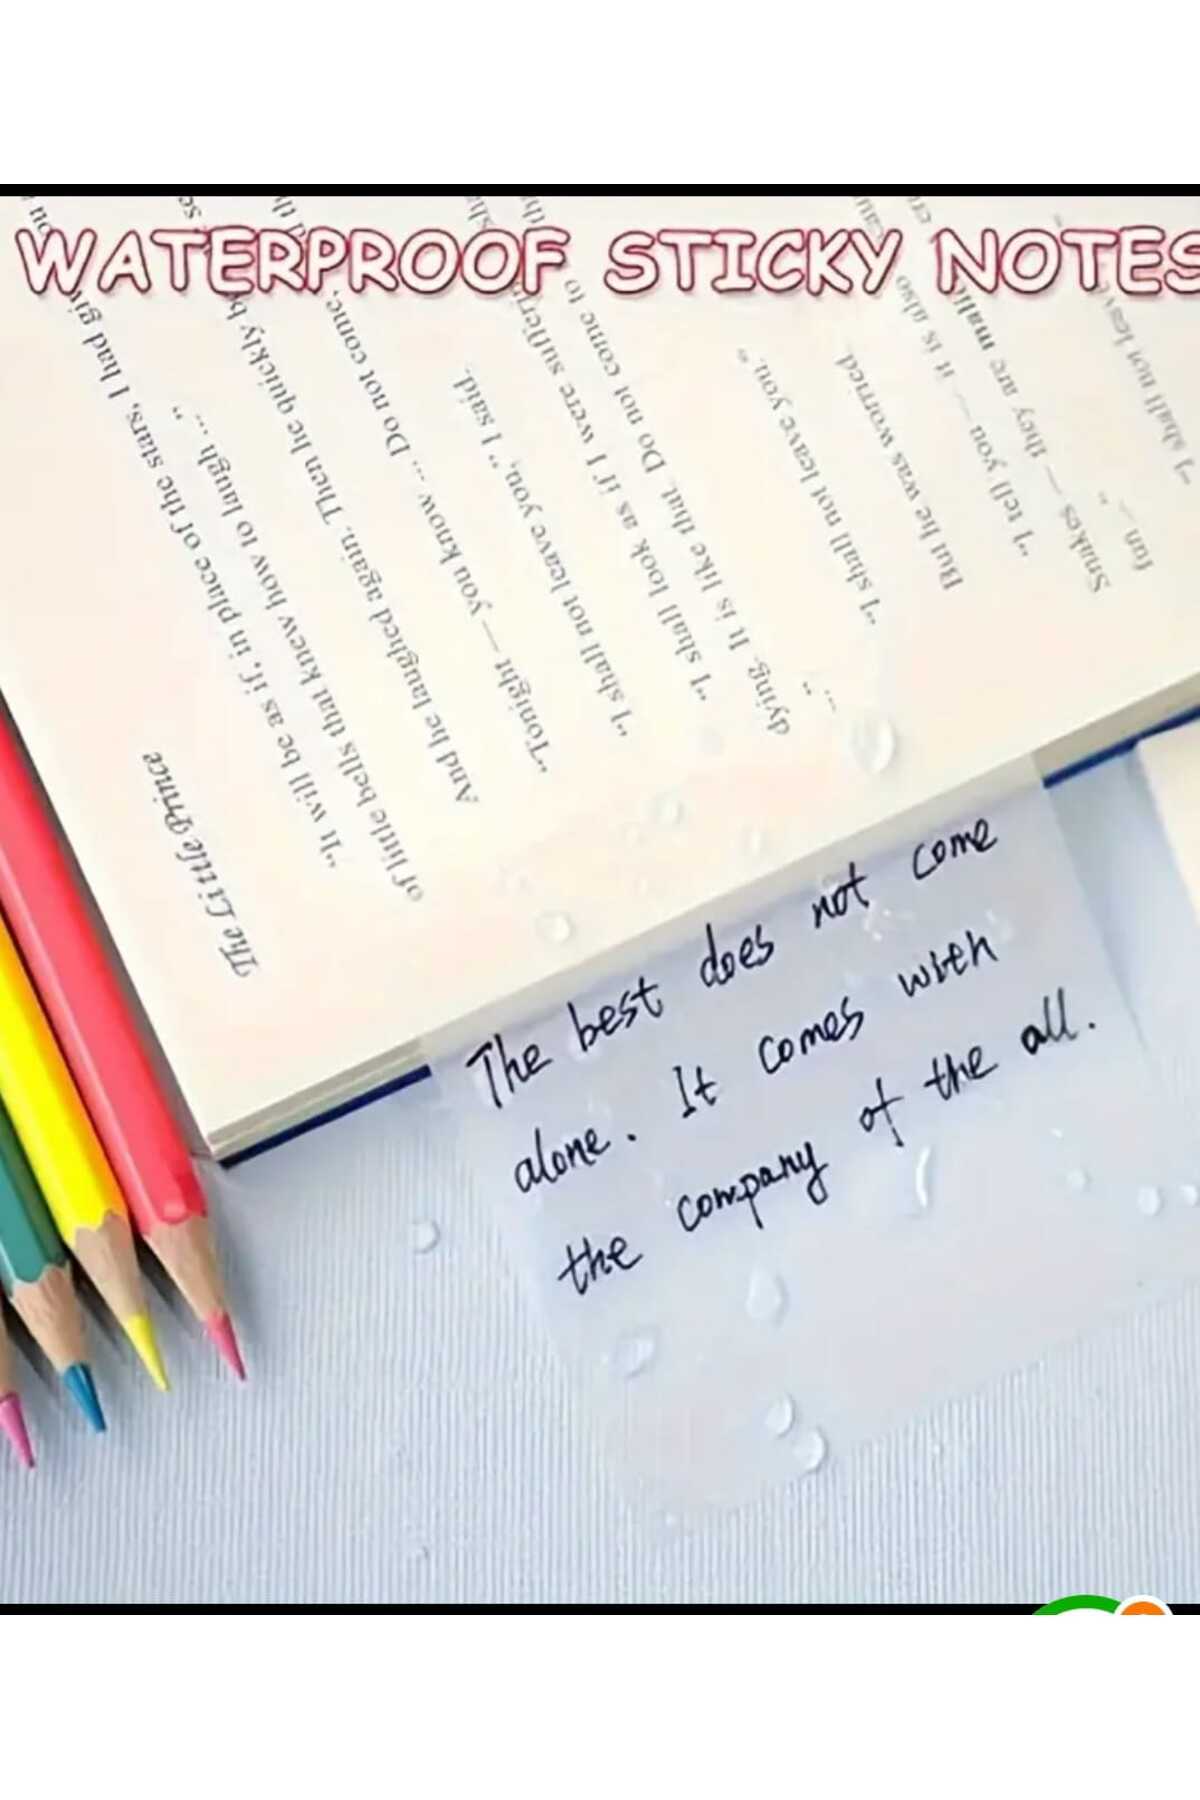 WATERPROOF STICKY NOTES
The Little Prince
"It will be as if, in place of the stars, I had giv
of little bells that knew how to laugh ..."
And he laughed again. Then he quickly b
"Tonight — you know ... Do not come,
"I shall not leave you," I said.
"I shall look as if I were suffer
dying. It is like that. Do not come to
..."
"I shall not leave you."
But he was worried.
"I tell you — it is also
Snakes — they are malic
fun ..."
"I shall not leav
The best does not come
alone. It comes with
the company of the all.